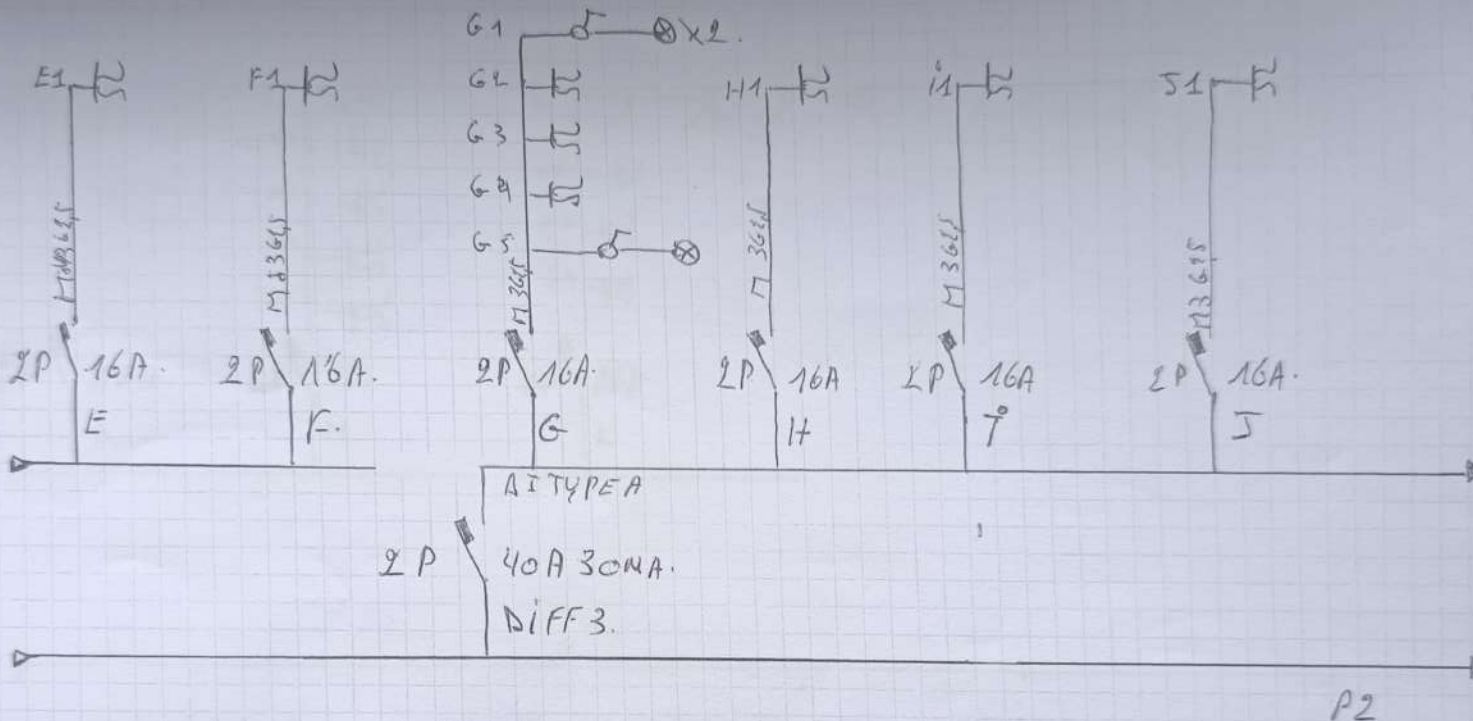 G1 X2.
E1
F1
G2
H1
i1
J1
G3
G4
G5
M3G2,5
M3G2,5
M3G2,5
M3G2,5
M3G2,5
2P 16A.
2P 16A.
2P 16A.
2P 16A
2P 16A
2P 16A.
E
F.
G
H
I
J
DI TYPE A
2P 40A 30MA.
DiFF 3.
P2